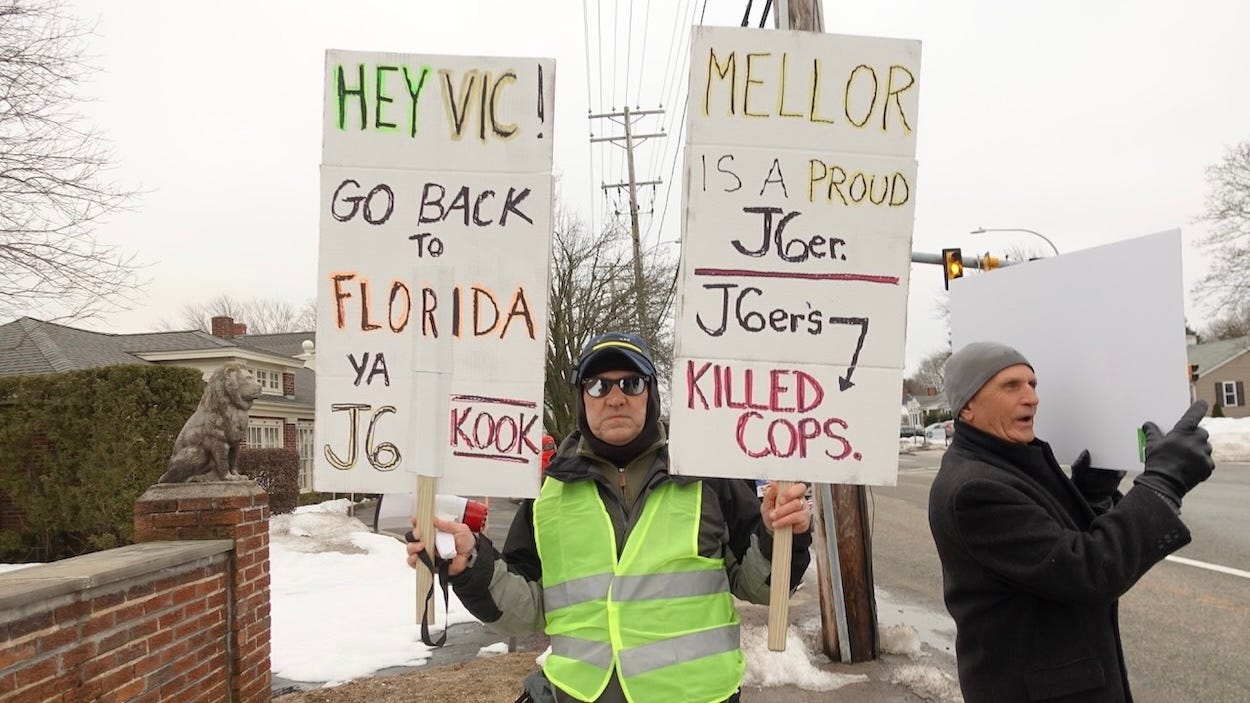 HEY VIC!
GO BACK
TO
FLORIDA
YA
J6 KOOK
MELLOR
IS A PROUD
J6er.
J6er's
KILLED
COPS.